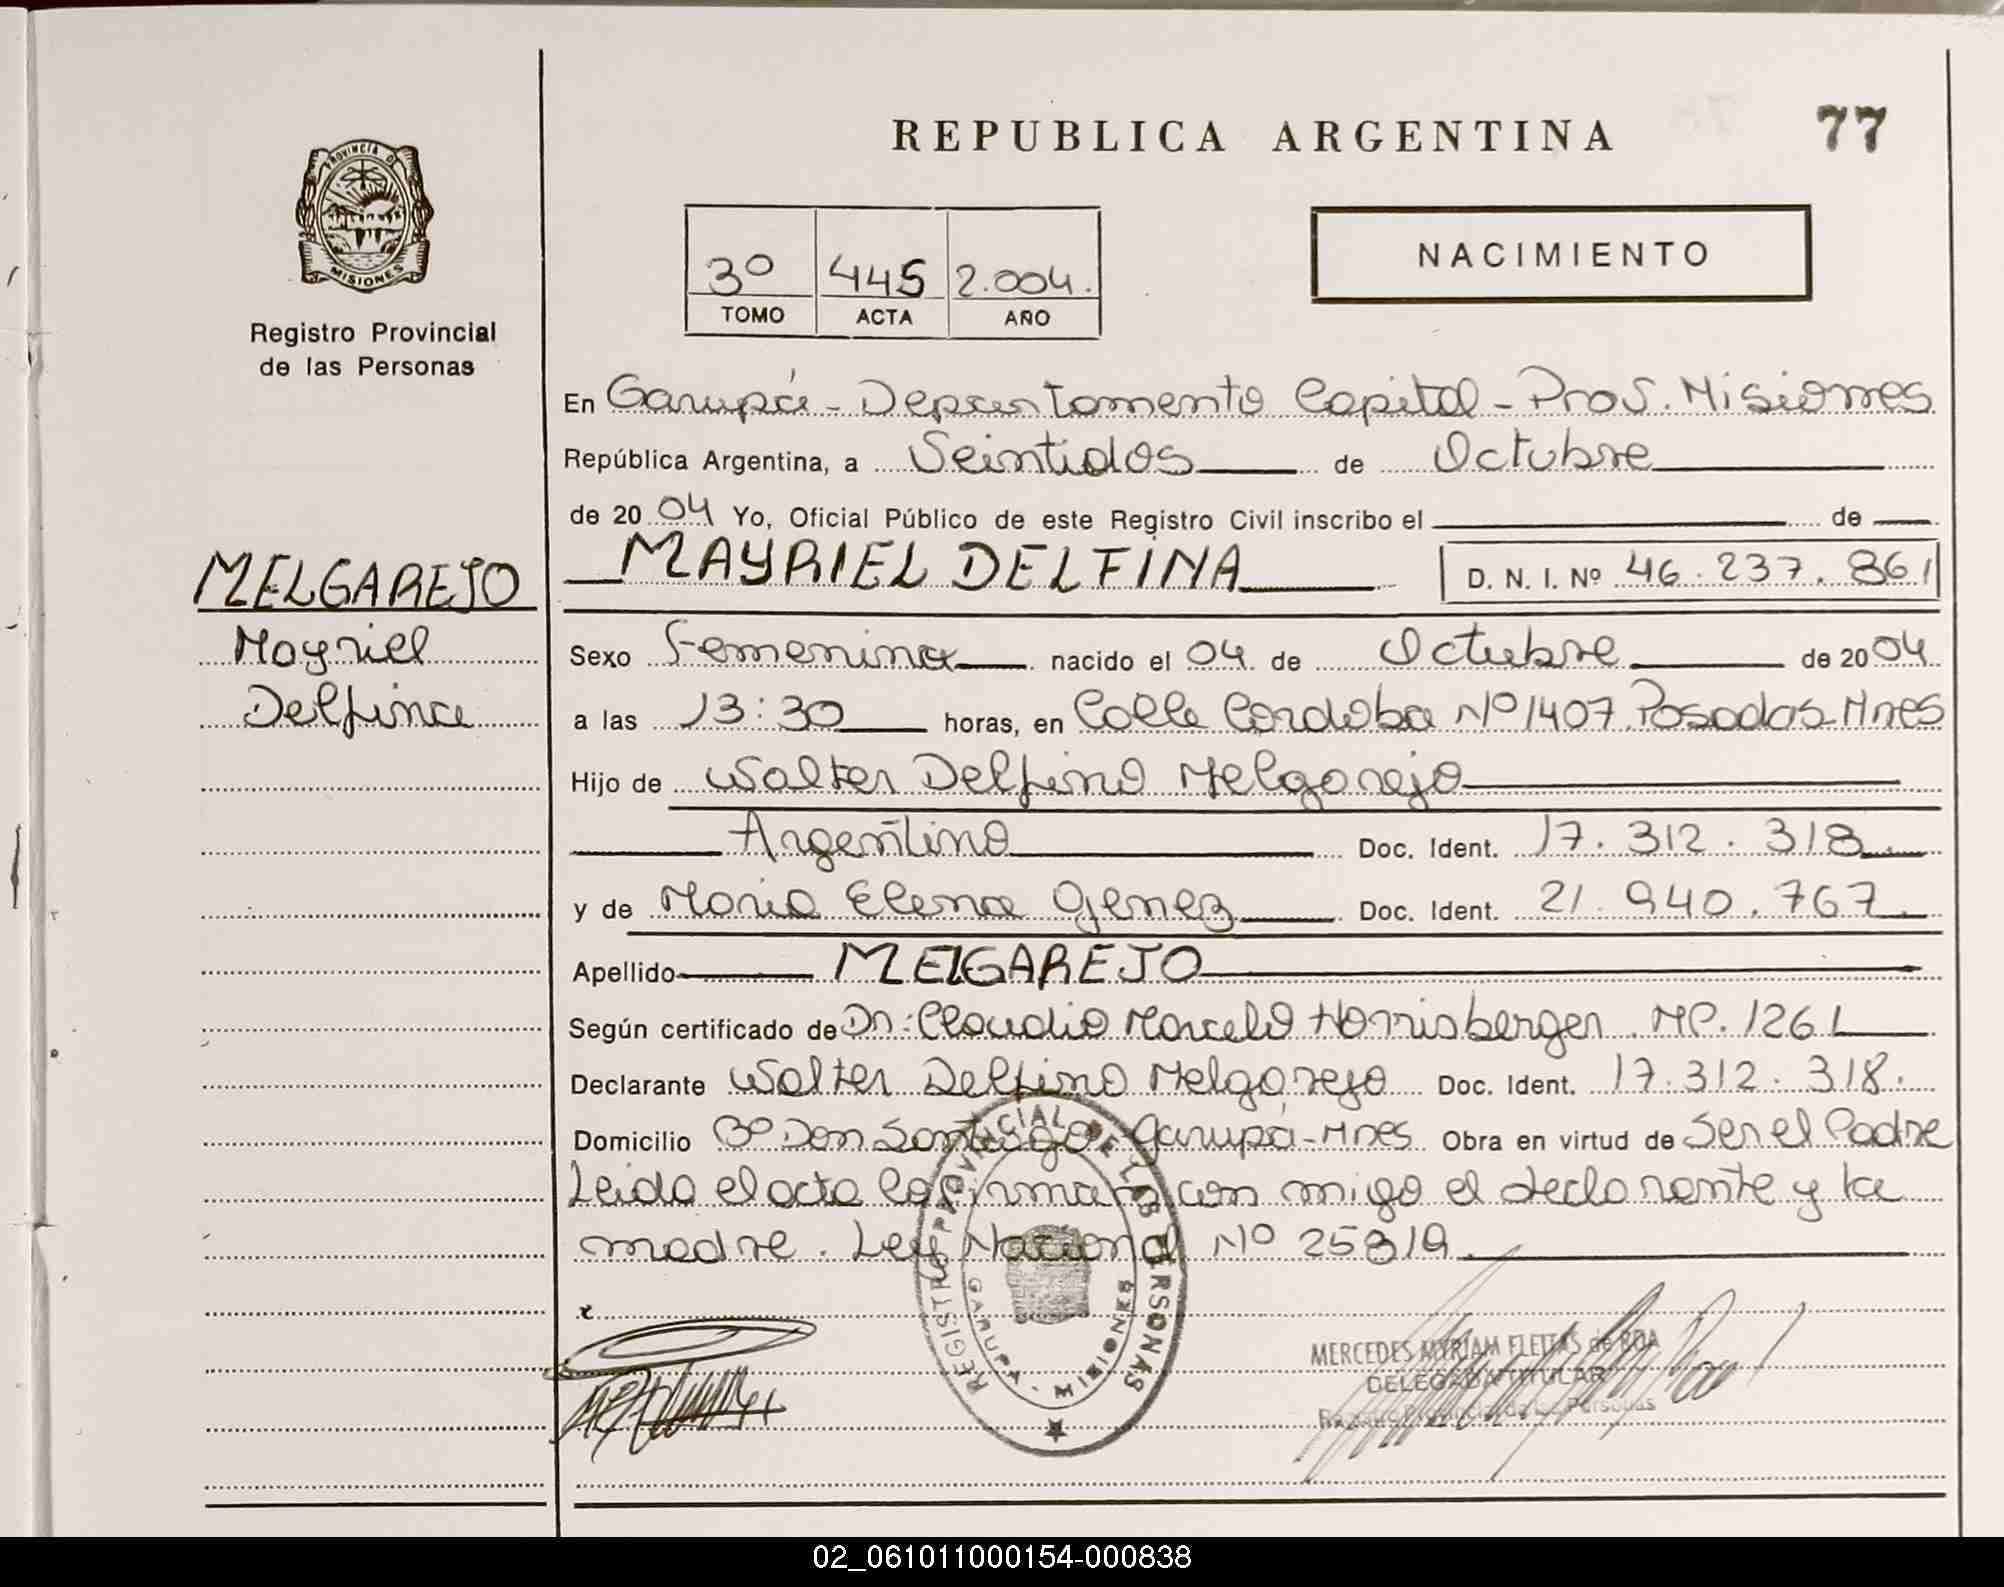 REPUBLICA ARGENTINA
77
PROVINCIA DE
MISIONES
Registro Provincial
de las Personas
3º 445 2.004.
TOMO ACTA AÑO
NACIMIENTO
En Garupá - Departamento Capital - Prov. Misiones
República Argentina, a Veintidos de Octubre
de 20 04 Yo, Oficial Público de este Registro Civil inscribo el de
MELGAREJO
Mayriel
Delfina
MAYRIEL DELFINA D. N. I. Nº 46.237.861
Sexo Femenina nacido el 04 de Octubre de 20 04
a las 13:30 horas, en Calle Cordoba Nº 1407 Posadas-Mnes
Hijo de Walter Delfino Melgarejo
Argentino Doc. Ident. 17.312.318
y de Maria Elena Genez Doc. Ident. 21.940.767.
Apellido MELGAREJO
Según certificado de Dr: Claudio Marcelo Horrisberger. MP. 1261
Declarante Walter Delfino Melgarejo Doc. Ident. 17.312.318.
Domicilio Bº Don Santiago Garupá-Mnes Obra en virtud de Ser el Padre
Leida el acta la firman con migo el declarante y la
madre. Ley Nacional Nº 25819
REGISTRO PROVINCIAL DE LAS PERSONAS
GARUPA - MISIONES
MERCEDES MYRIAM FLEITAS de ROA
DELEGADA TITULAR
Registro Provincial de las Personas
02_061011000154-000838